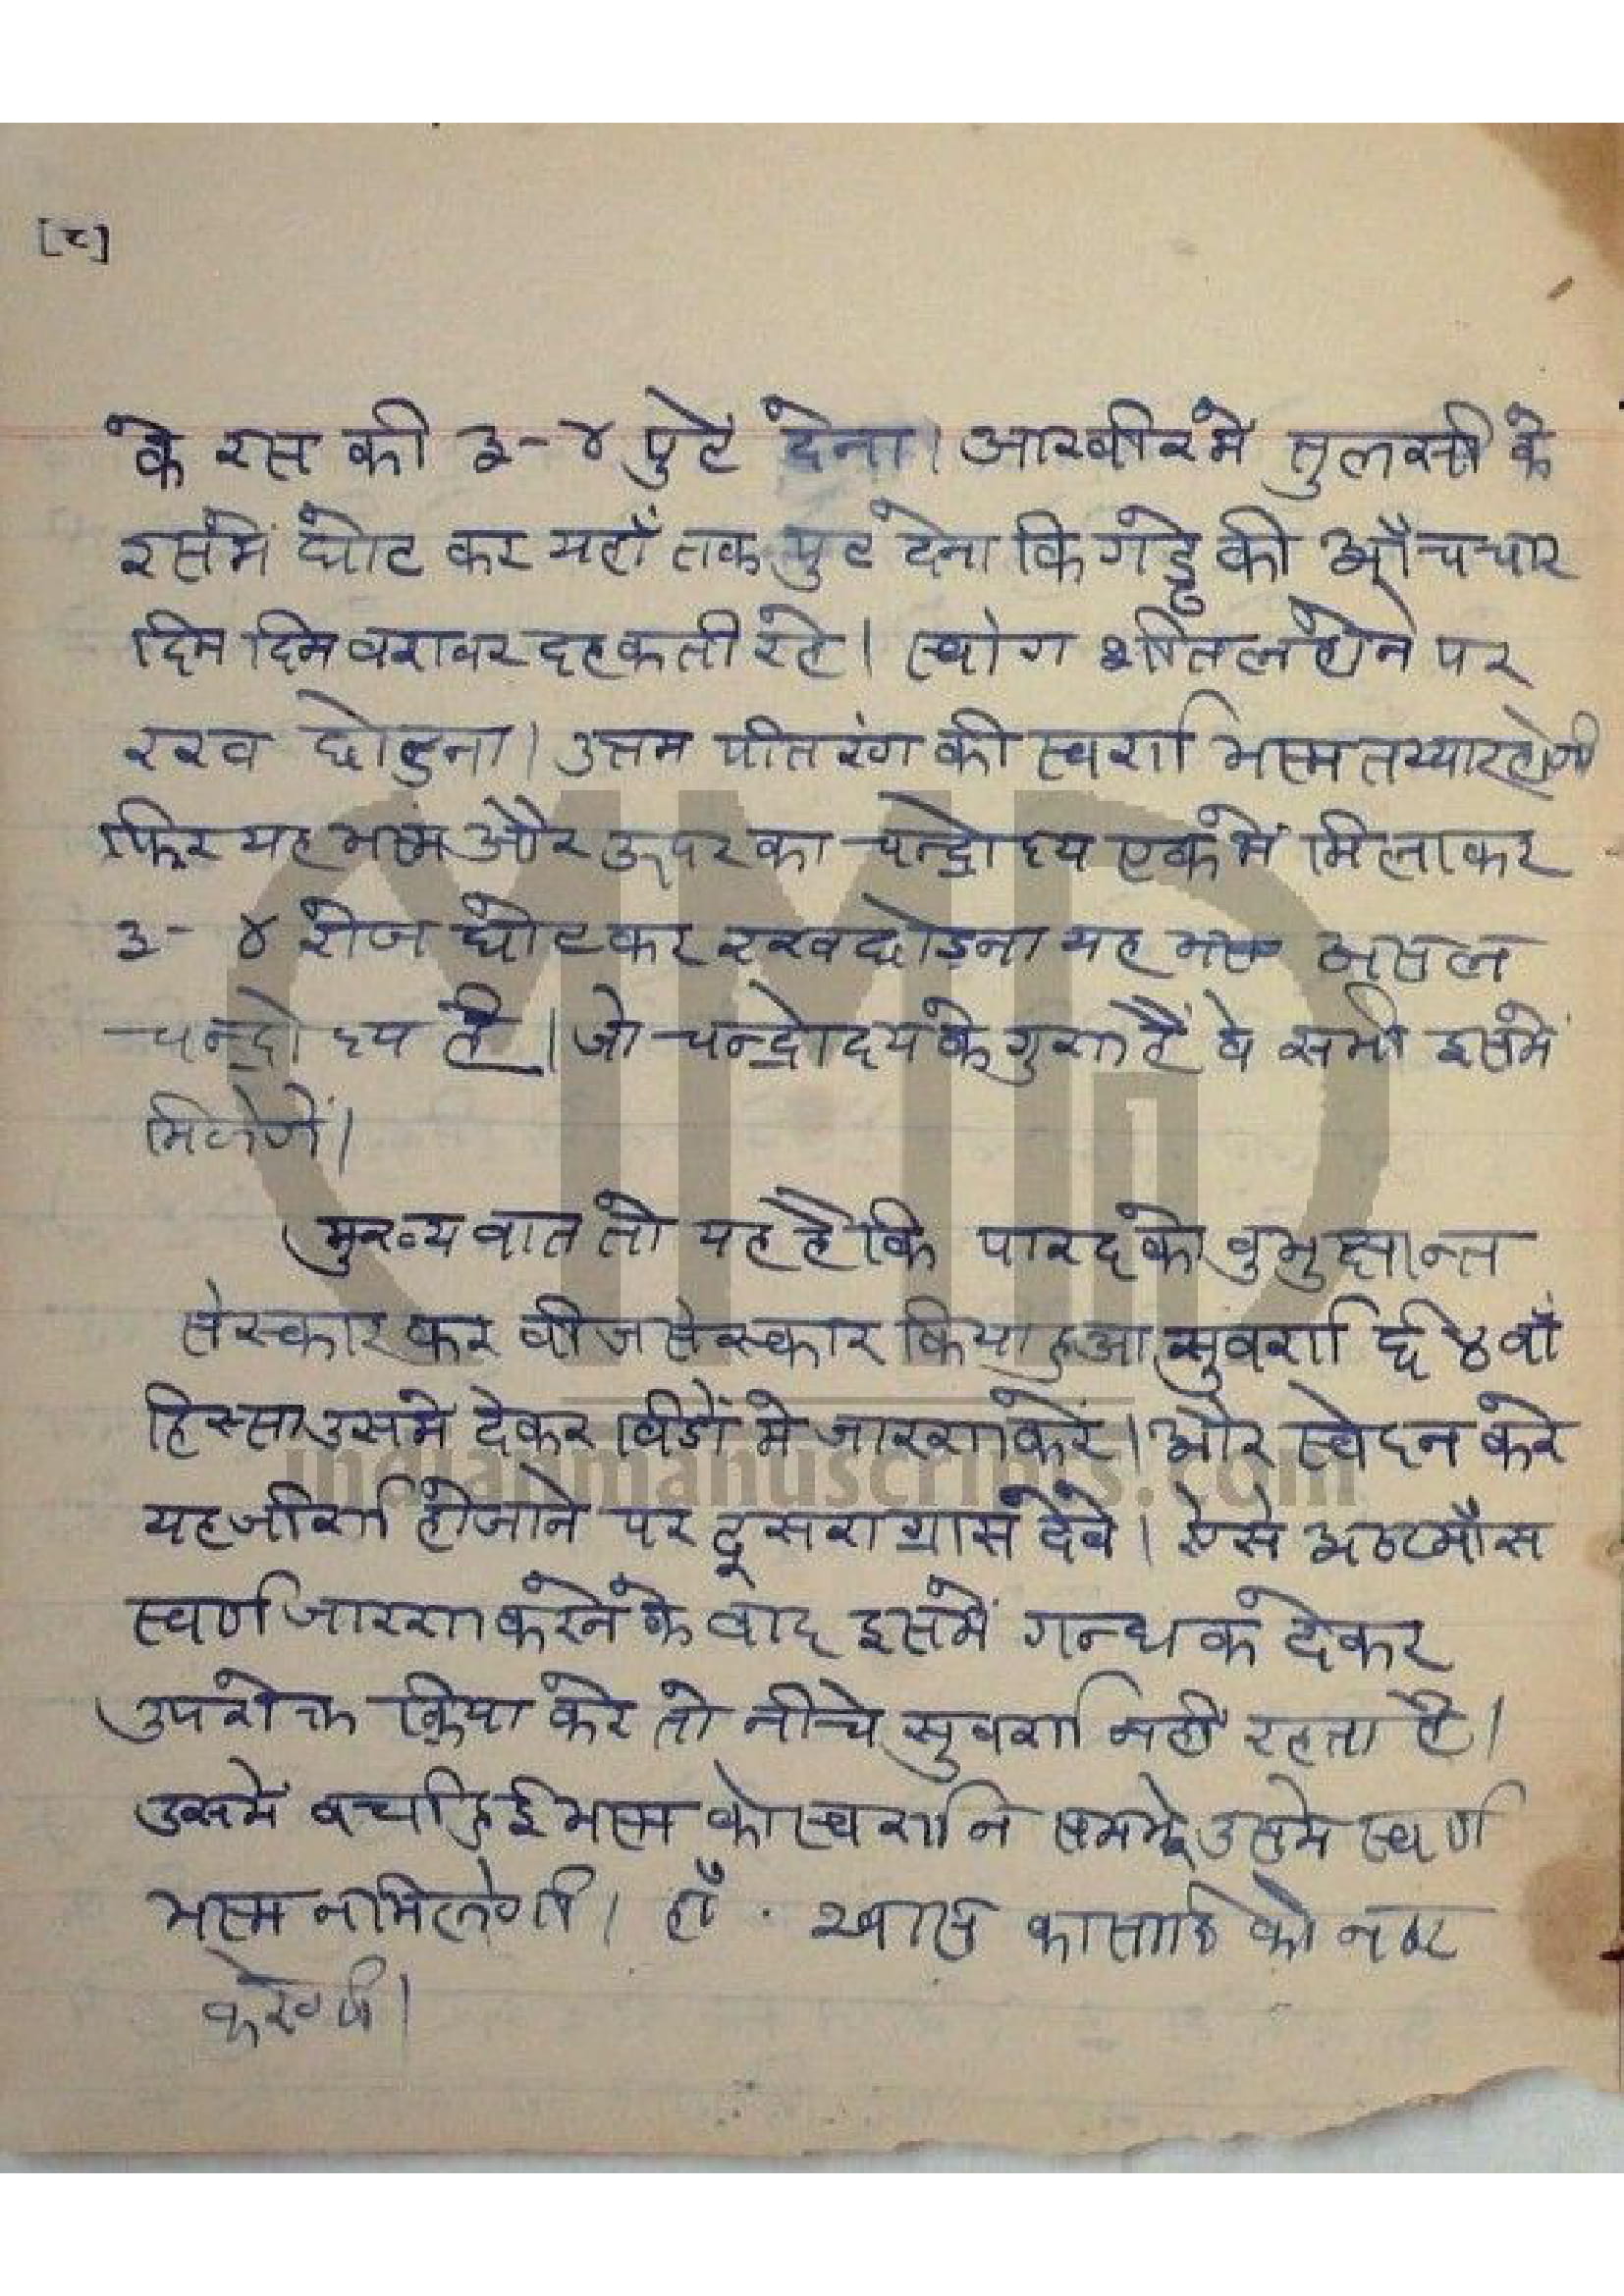 [८]
के रस की ३-४ पुटें देना। आखीर में तुलसी के
रसमें घोट कर यहाँ तक पुट देना कि गड्ढे की आँच चार
दिन दिन वरावर दहकती रहे। स्वांग शीतल होने पर
रख छोडना। उत्तम पीत रंग की स्वर्ण भस्म तय्यार होगी
फिर यह भस्म और ऊपर का चन्द्रोदय एक में मिलाकर
३-४ रोज घोट कर रख छोड़ना यह असल
चन्द्रोदय है। जो चन्द्रोदय के गुण हैं वे सभी इसमें
मिलेगें।
मुख्य वात तो यह है कि पारद को वुभुक्षान्त
संस्कार कर वीज संस्कार किया हुआ सुवर्ण ६४ वाँ
हिस्सा उसमें देकर विडों में जारण करें। और स्वेदन करे
यह जीर्ण होजाने पर दूसरा ग्रास देवे। ऐसे अष्टमाँस
स्वर्ण जारण करने के वाद इसमें गन्धक देकर
उपरोक्त क्रिया करे तो नीचे सुवर्ण नही रहता है।
उसमें वची हुई भस्म को स्वर्ण न समझे उसमे स्वर्ण
भस्म न मिलेगी। हाँ . श्वास कासादि को नष्ट
करेगी।
MMD
indianmanuscripts.com